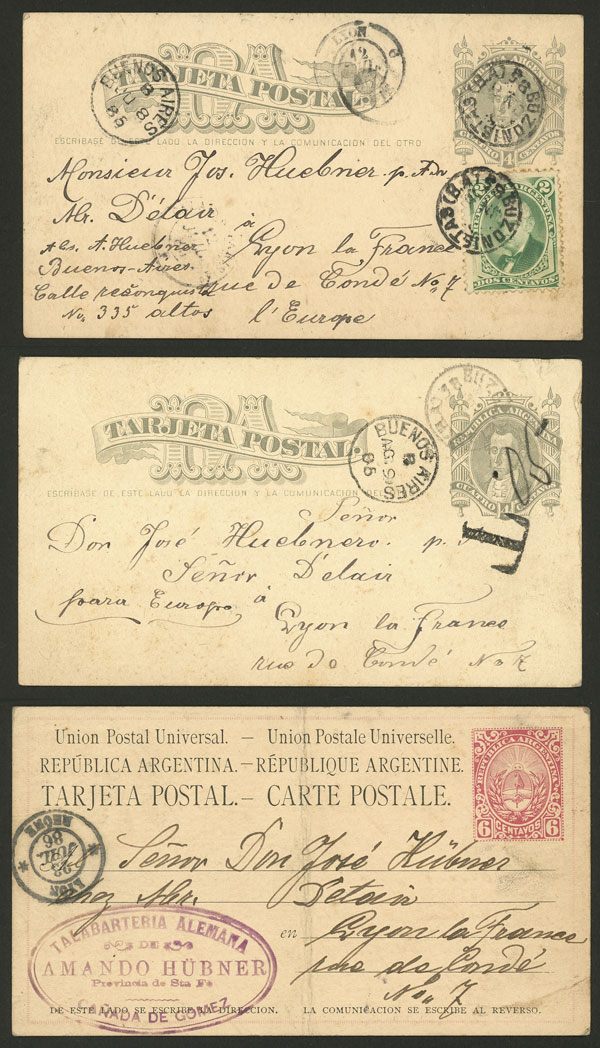 LYON
BUENOS AIRES
B
JU 8
85
TARJETA POSTAL.
REPÚBLICA ARGENTINA
CUATRO 4 CENTAVOS
BUZONISTAS (B.A.)
ESCRIBASE DE ESTE LADO LA DIRECCION Y LA COMUNICACION DEL OTRO
Monsieur Jos. Huebner p. Adr
Mr. Délair
à
Abs. A. Huebner
Lyon la France
Buenos-Aires
rue de Condé No. 7
Calle reconquista
No. 335 altos
l'Europe
BUZONISTAS (B.A.)
2
DOS CENTAVOS
TARJETA POSTAL.
REPÚBLICA ARGENTINA
CUATRO 4
BUENOS AIRES
B
AG 9
85
ESCRIBASE DE ESTE LADO LA DIRECCION Y LA COMUNICACION DEL
T
Señor
Don José Huebnero p.
Señor Délair
para Europa à
Lyon la France
rue de Condé No 7
Union Postal Universal. — Union Postale Universelle.
REPÚBLICA ARGENTINA. — RÉPUBLIQUE ARGENTINE.
TARJETA POSTAL. — CARTE POSTALE.
REPUBLICA ARGENTINA
6 CENTAVOS 6
LYON
23
JUIL
86
RHONE
Señor Don José Hübner
chez Mr. Delair
en Lyon la France
rue de Condé
No. 7
TALABARTERIA ALEMANA
DE
AMANDO HÜBNER
Provincia de Sta Fé
CAÑADA DE GOMEZ
DE ESTE LADO SE ESCRIBE LA DIRECCION. LA COMUNICACION SE ESCRIBE AL REVERSO.